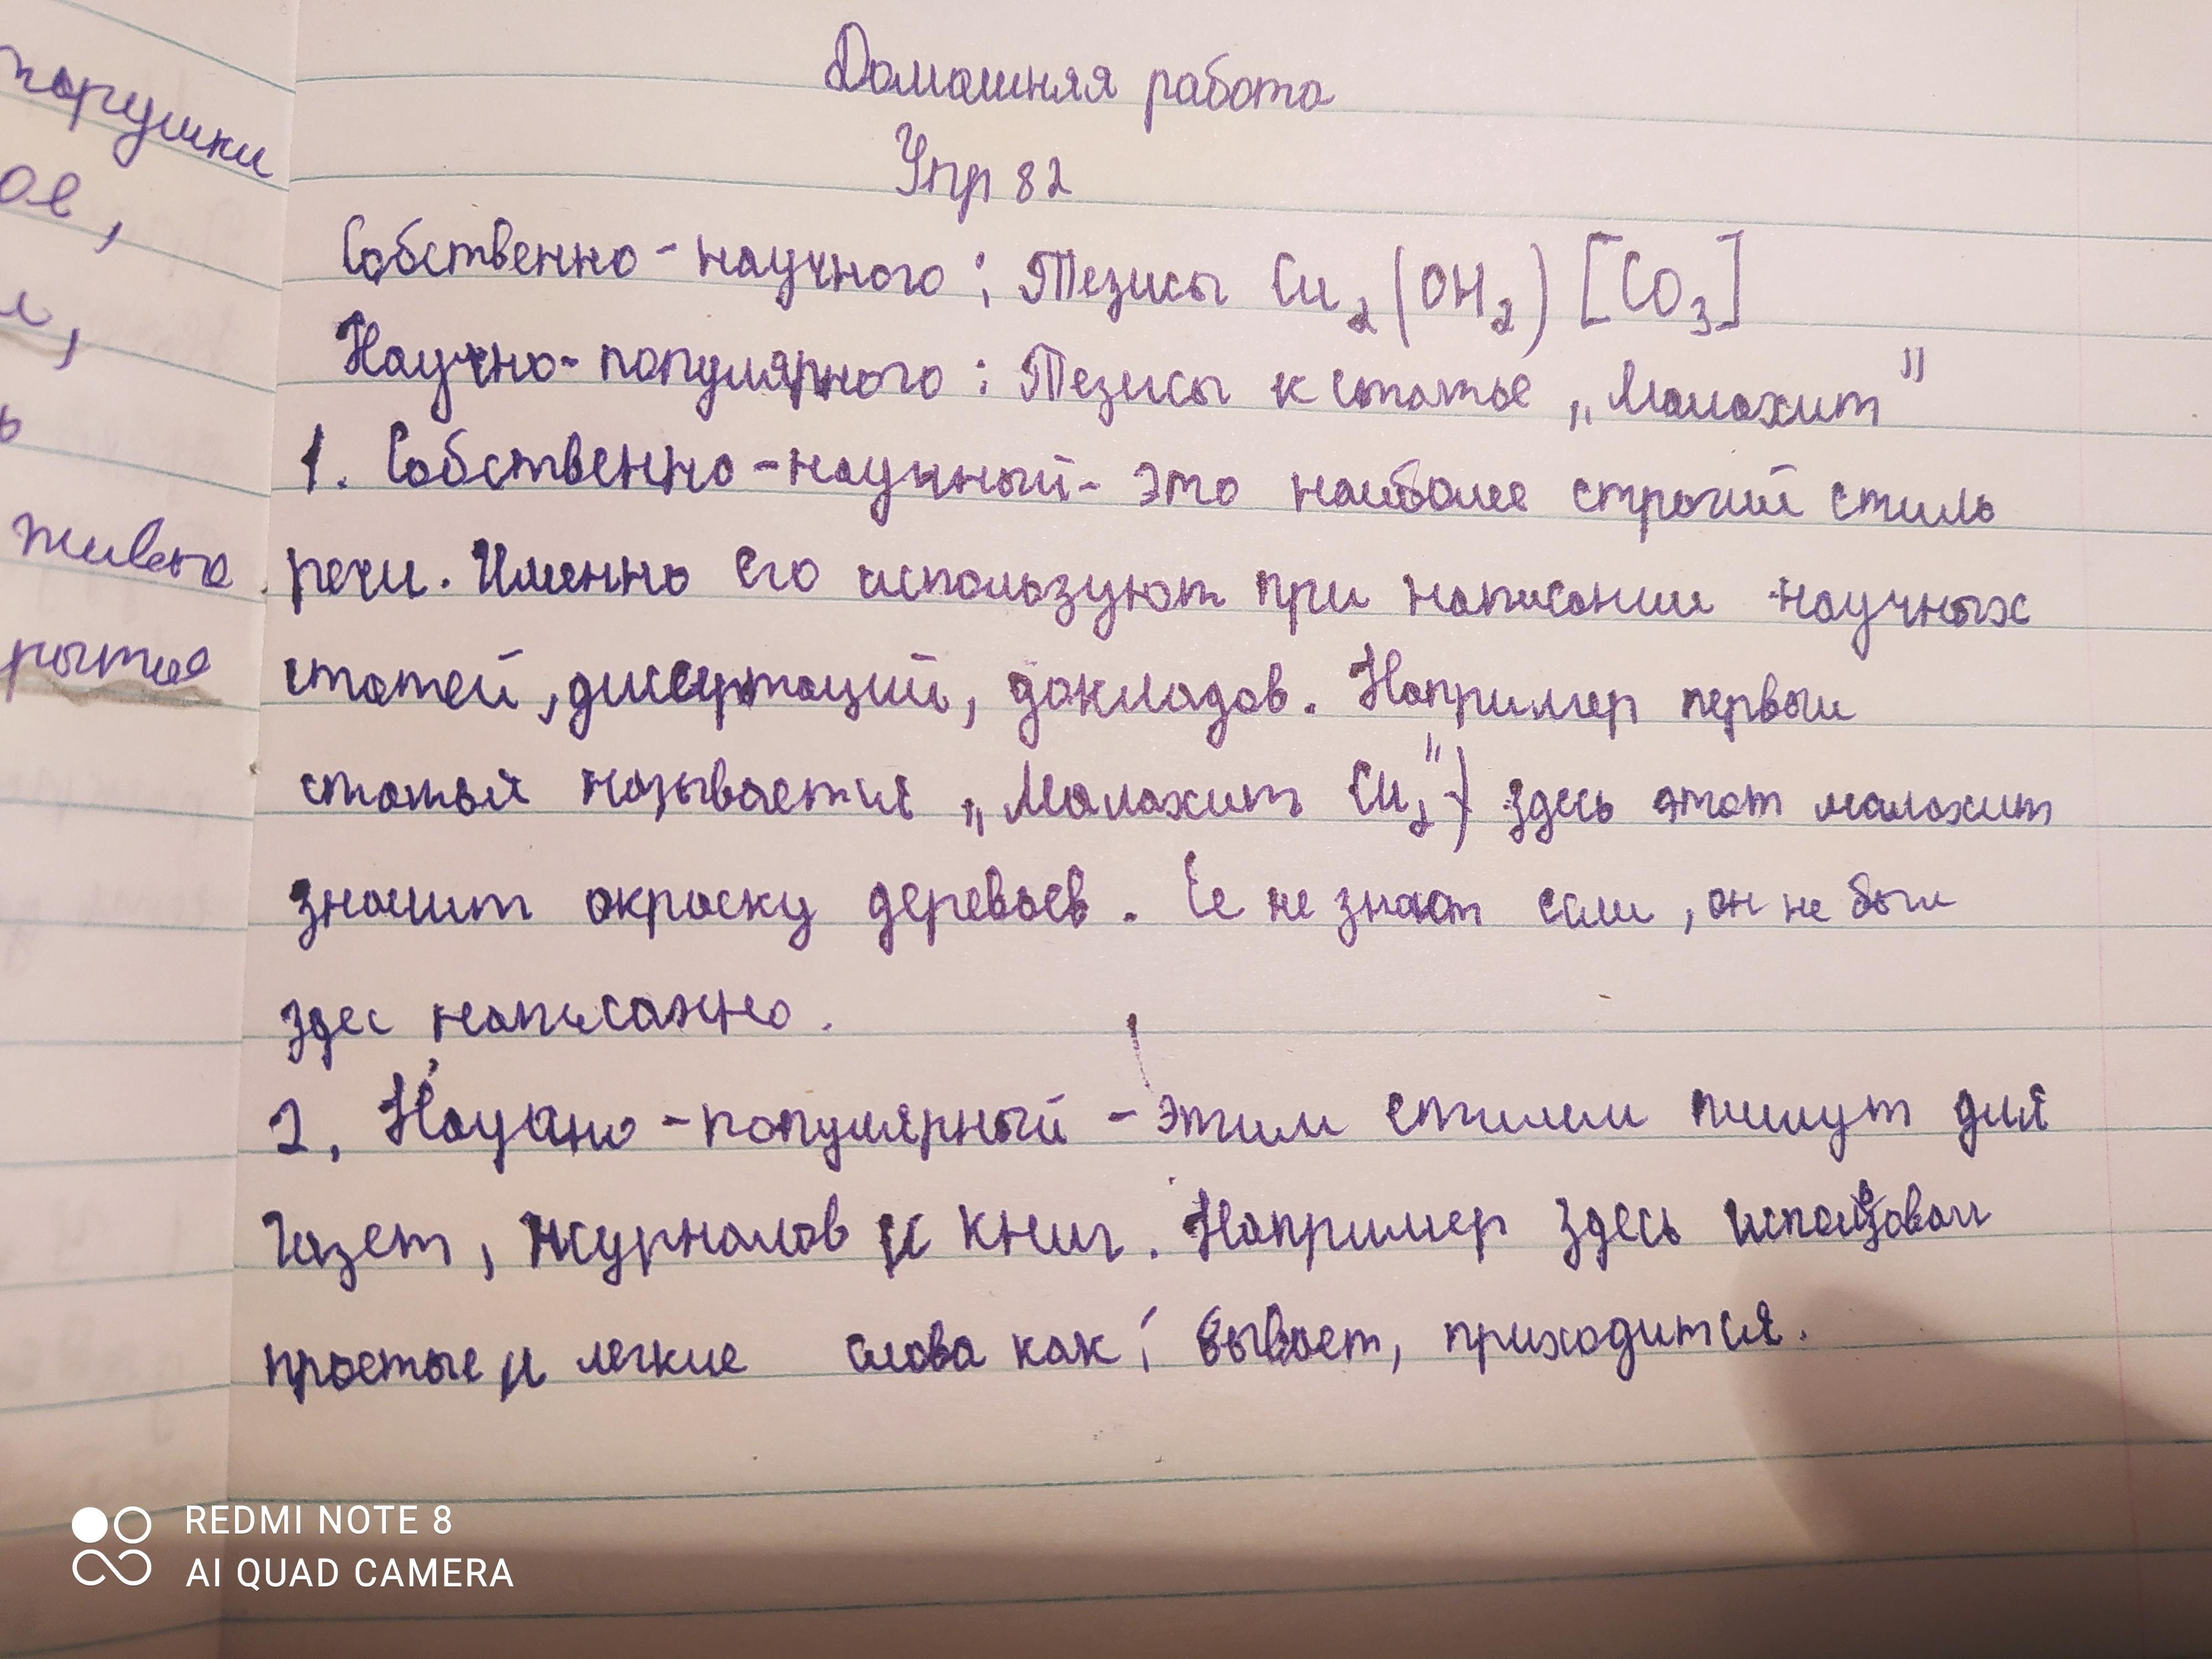 Домашняя работа
Упр 82
Собственно-научного: Тезисы Cu₂(OH₂)[CO₃]
Научно-популярного: Тезисы к статье „Малахит"
1. Собственно-научный- это наиболее строгий стиль
речи. Именно его используют при написании научных
статей, диссертаций, докладов. Например первый
статья называется „Малахит Cu₂") здесь этот малахит
значит окраску деревьев. Ее не знает если, он не был
здес написанно.
2. Научно-популярный - этим стилем пишут для
газет, журналов и книг. Например здесь использовал
простые и легкие слова как: бывает, приходится.
порушки
ое,
л,
ь
живые
рытие
REDMI NOTE 8
AI QUAD CAMERA